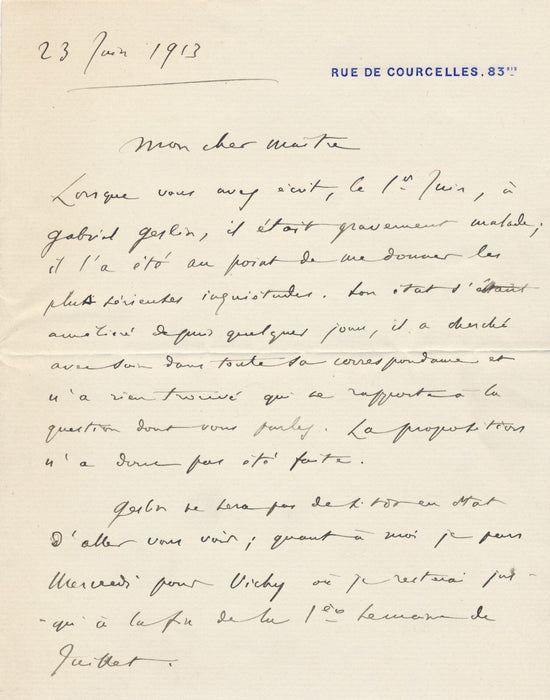 23 Juin 1913
RUE DE COURCELLES. 83BIS
Mon cher maître
Lorsque vous avez écrit, le 1er Juin, à
Gabriel Geslin, il était gravement malade;
il l'a été au point de me donner les
plus sérieuses inquiétudes. Son état s'étant
amélioré depuis quelques jours, il a cherché
avec soin dans toute sa correspondance et
n'a rien trouvé qui se rapporte à la
question dont vous parlez. La proposition
n'a donc pas été faite.
Geslin ne sera pas de sitôt en état
d'aller vous voir; quant à moi je pars
Mercredi pour Vichy où je resterai jus-
-qu'à la fin de la 1ère semaine de
Juillet.